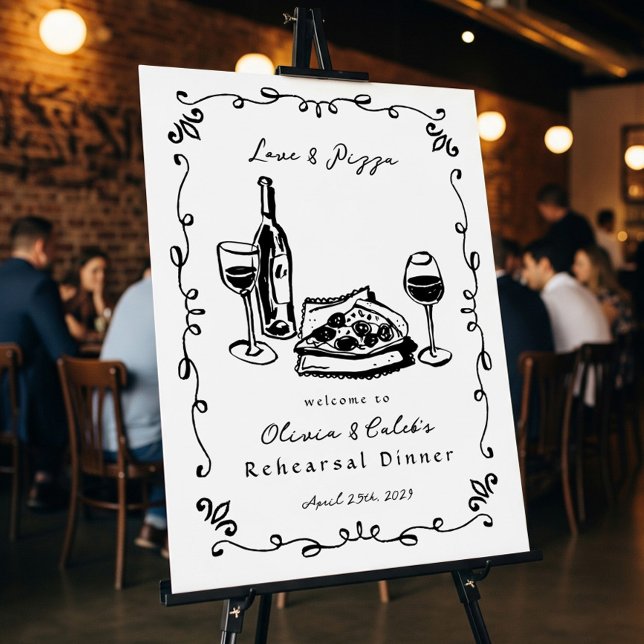 Love & Pizza
welcome to
Olivia & Caleb's
Rehearsal Dinner
April 25th, 2029